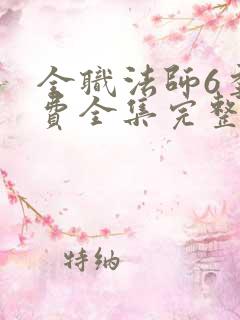 全職法師6
費全集完整
特纳